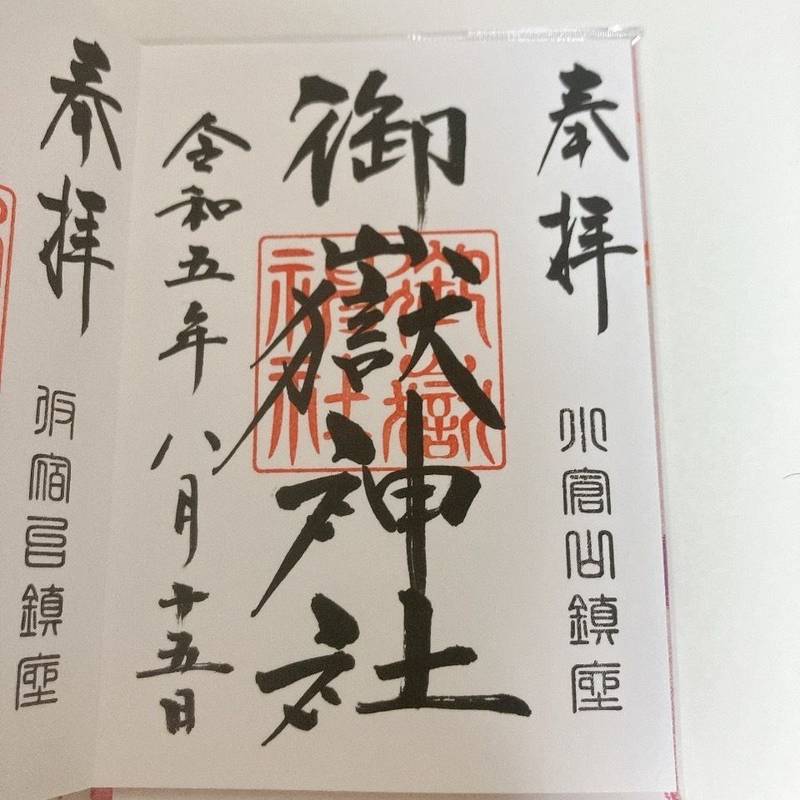 奉拝
小倉山鎮座
御嶽神社
御嶽
神社
令和五年八月十五日
奉拝
宿邑鎮座